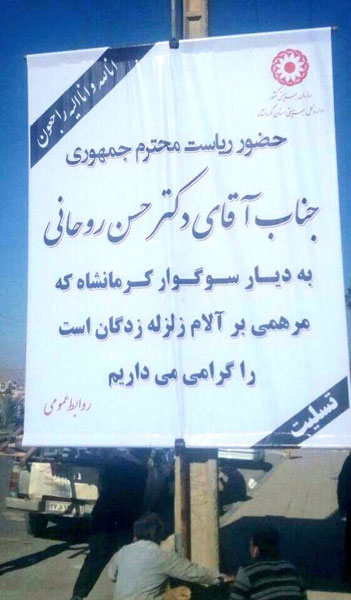 انا لله و انا الیه راجعون
سازمان بهزیستی کشور
اداره کل بهزیستی استان کرمانشاه
حضور ریاست محترم جمهوری
جناب آقای دکتر حسن روحانی
به دیار سوگوار کرمانشاه که
مرهمی بر آلام زلزله زدگان است
را گرامی می داریم
روابط عمومی
تسلیت